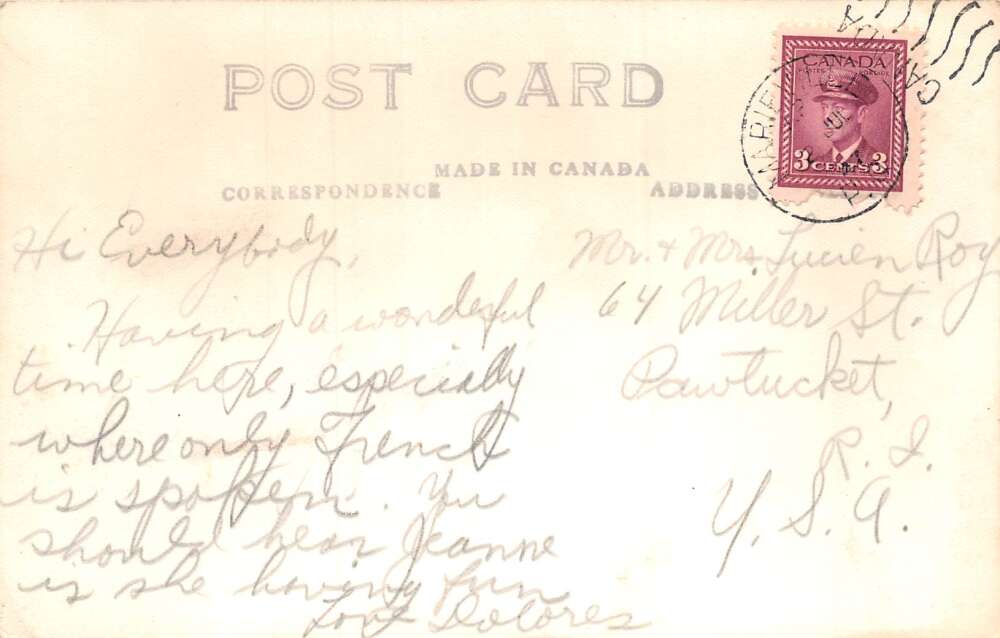 POST CARD
MADE IN CANADA
CORRESPONDENCE
ADDRESS
CANADA
POSTES POSTAGE
3 CENTS 3
CANADA
JUL
Hi Everybody,
Having a wonderful
time here, especially
where only French
is spoken. You
should hear Jeanne
is she having fun
Love Dolores
Mr. + Mrs. Lucien Roy
64 Miller St.
Pawtucket,
R. I.
U. S. A.